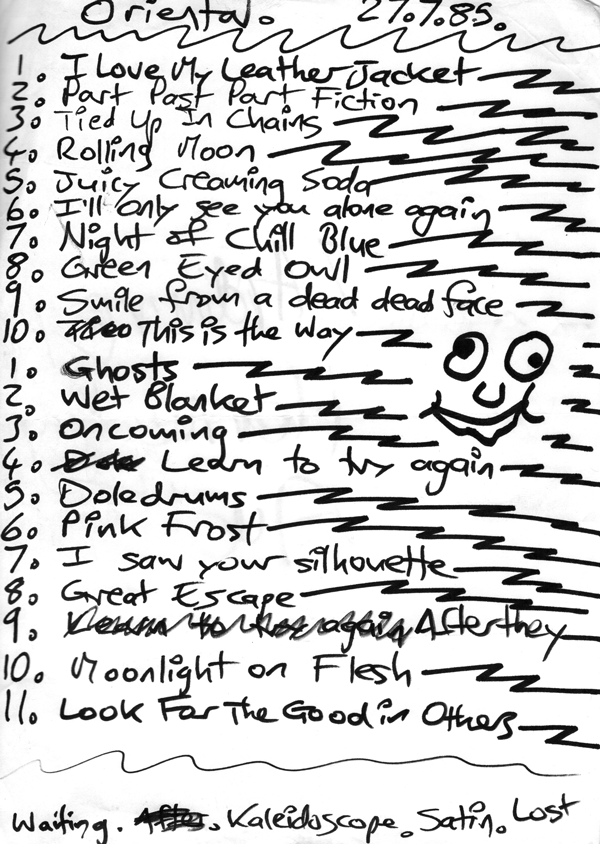 Oriental. 27.7.85.
1. I Love My Leather Jacket
2. Part Past Part Fiction
3. Tied Up In Chains
4. Rolling Moon
5. Juicy Creaming Soda
6. I'll only see you alone again
7. Night of Chill Blue
8. Green Eyed Owl
9. Smile from a dead dead face
10. This is the way
1. Ghosts
2. Wet Blanket
3. Oncoming
4. Learn to try again
5. Doledrums
6. Pink Frost
7. I saw your silhouette
8. Great Escape
9. Learn to try again After they
10. Moonlight on Flesh
11. Look For The Good in Others
Waiting. After. Kaleidoscope. Satin. Lost